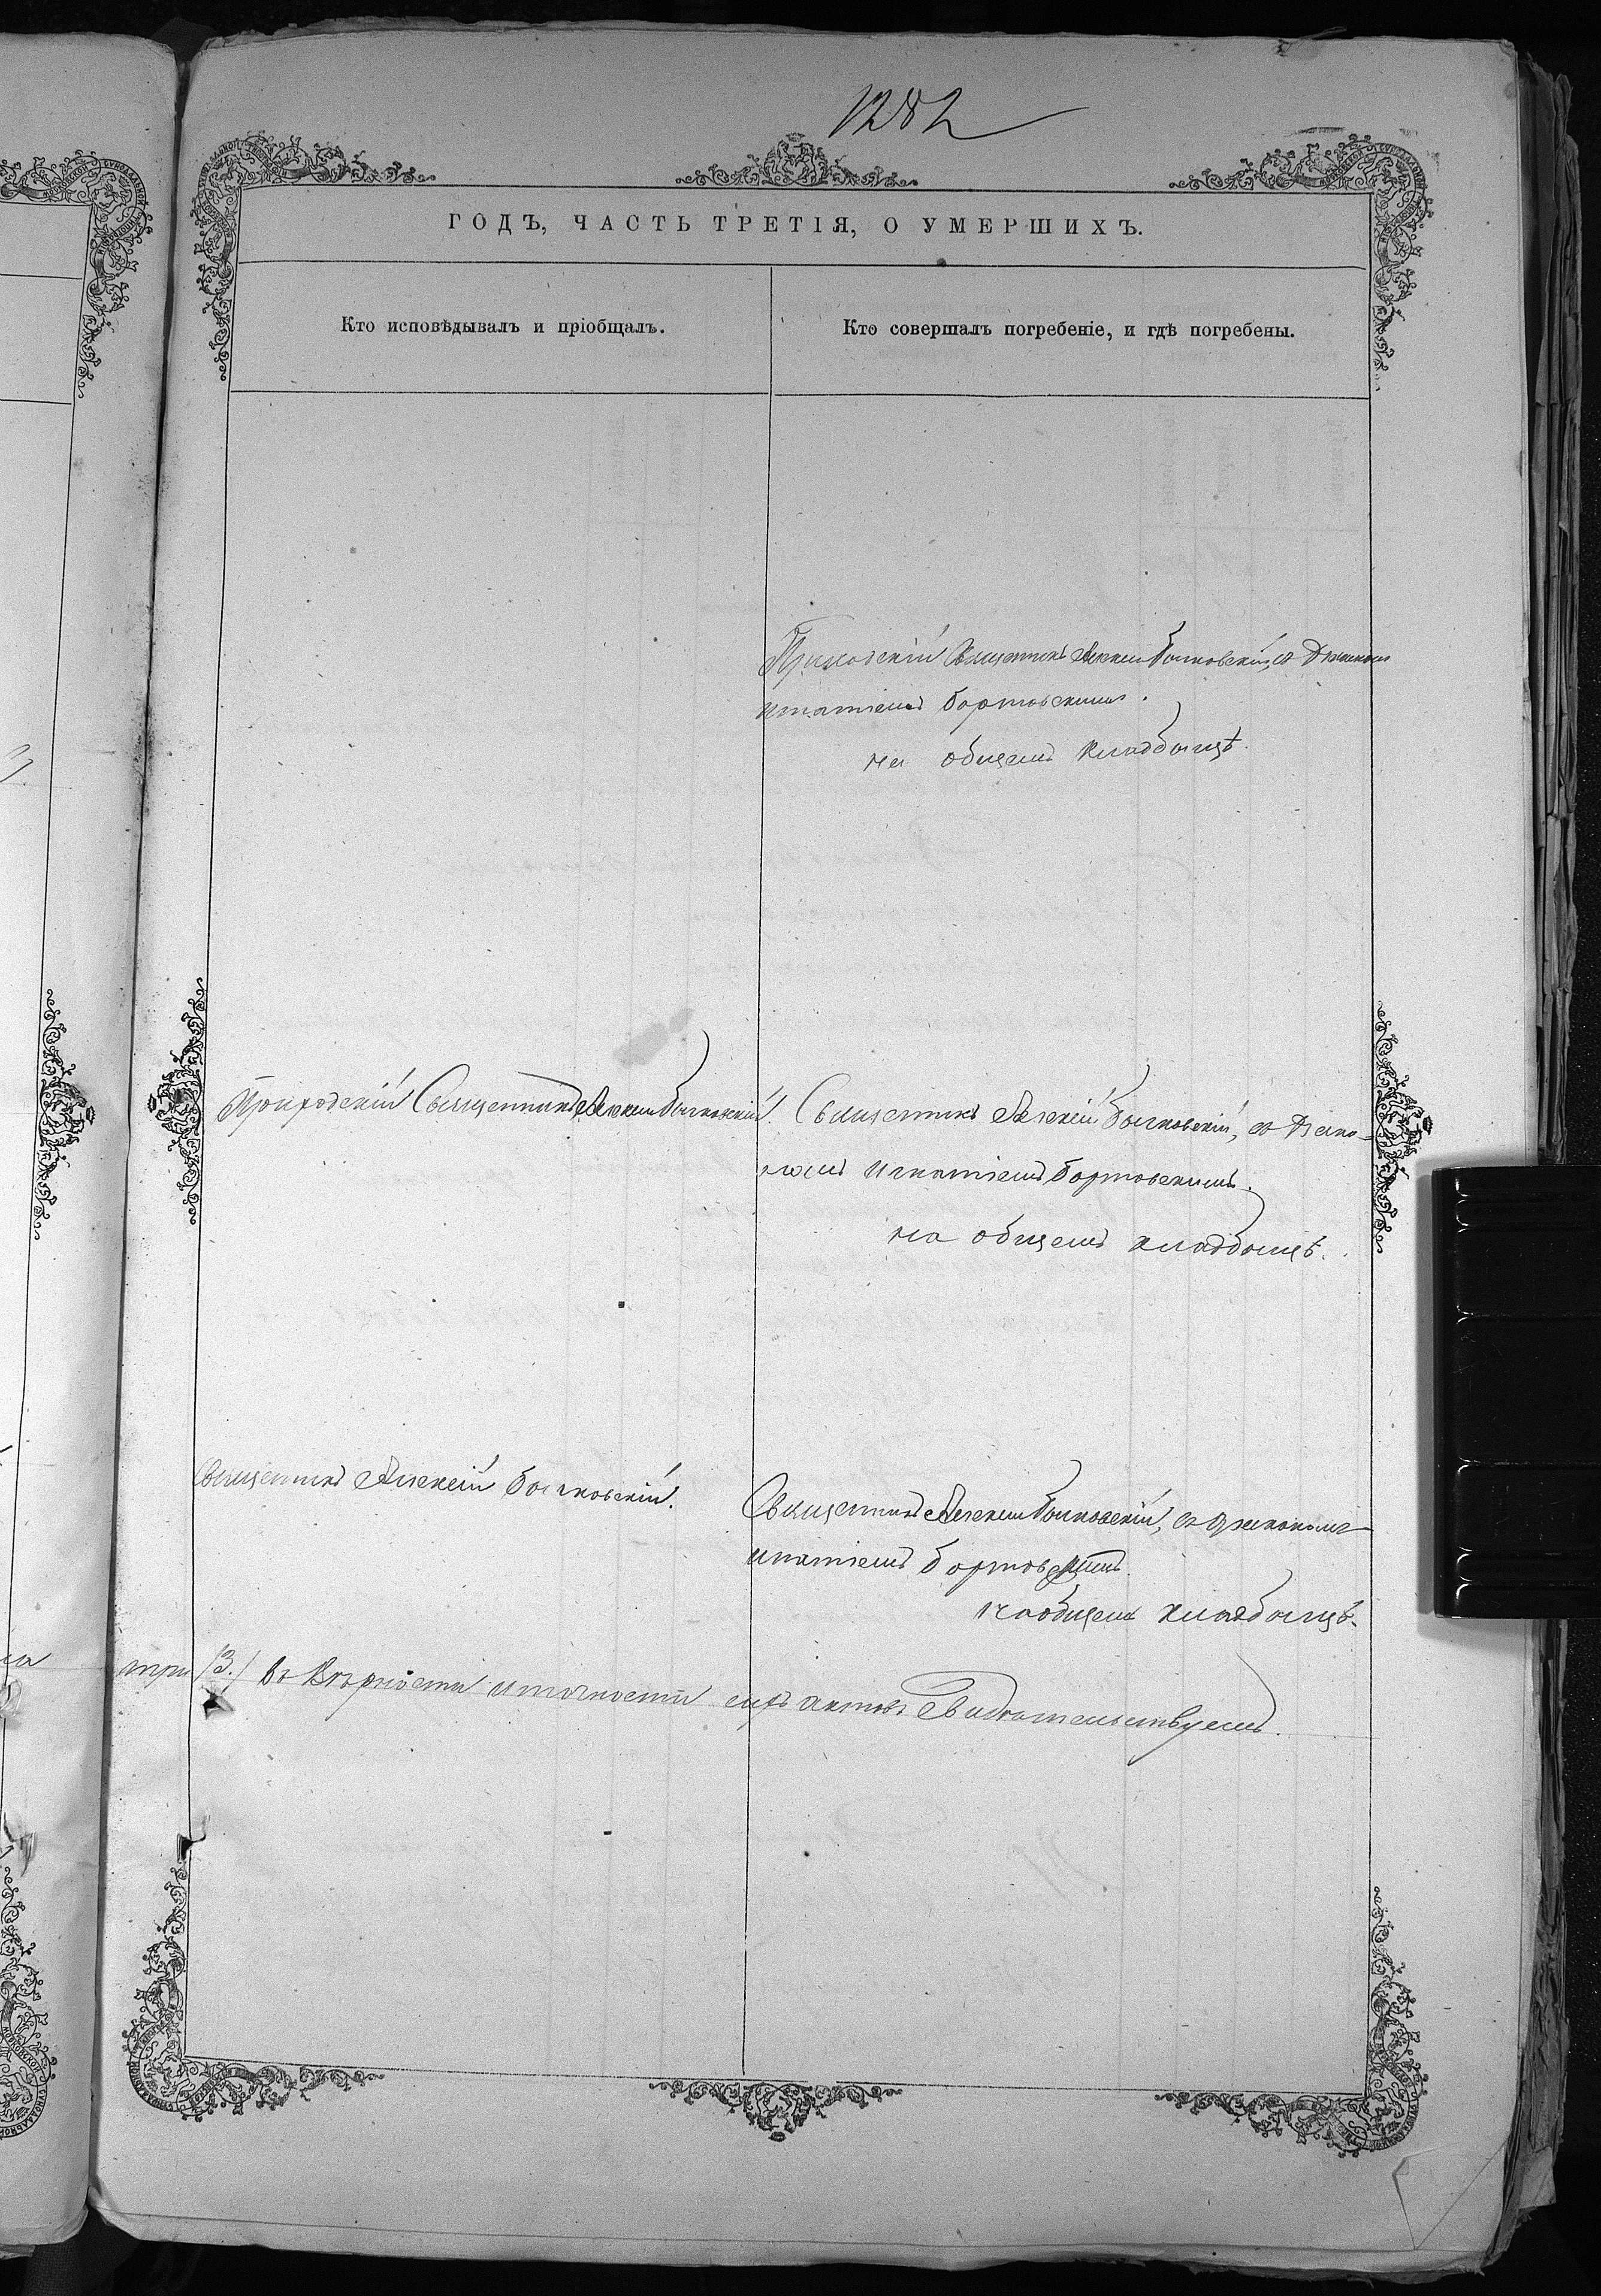 1282
ГОДЪ, ЧАСТЬ ТРЕТІЯ, О УМЕРШИХЪ.
Кто исповѣдывалъ и пріобщалъ.
Кто совершалъ погребеніе, и гдѣ погребены.
Приходскій Священникъ Алексій Бычковскій, съ Діакономъ
Игнатіемъ Бортовскимъ.
на общемъ кладбыщѣ.
Приходскій Священникъ Алексій Бычковскій.
Священникъ Алексій Бычковскій, съ Діако-
номъ Игнатіемъ Бортовскимъ.
на общемъ кладбыщѣ.
Священникъ Алексій Бычковскій.
Священникъ Алексій Бычковскій, съ Діакономъ
Игнатіемъ Бортовскимъ.
на общемъ кладбыщѣ.
три /3./ въ вѣрности и точности сихъ актовъ свидѣтельствуемъ.